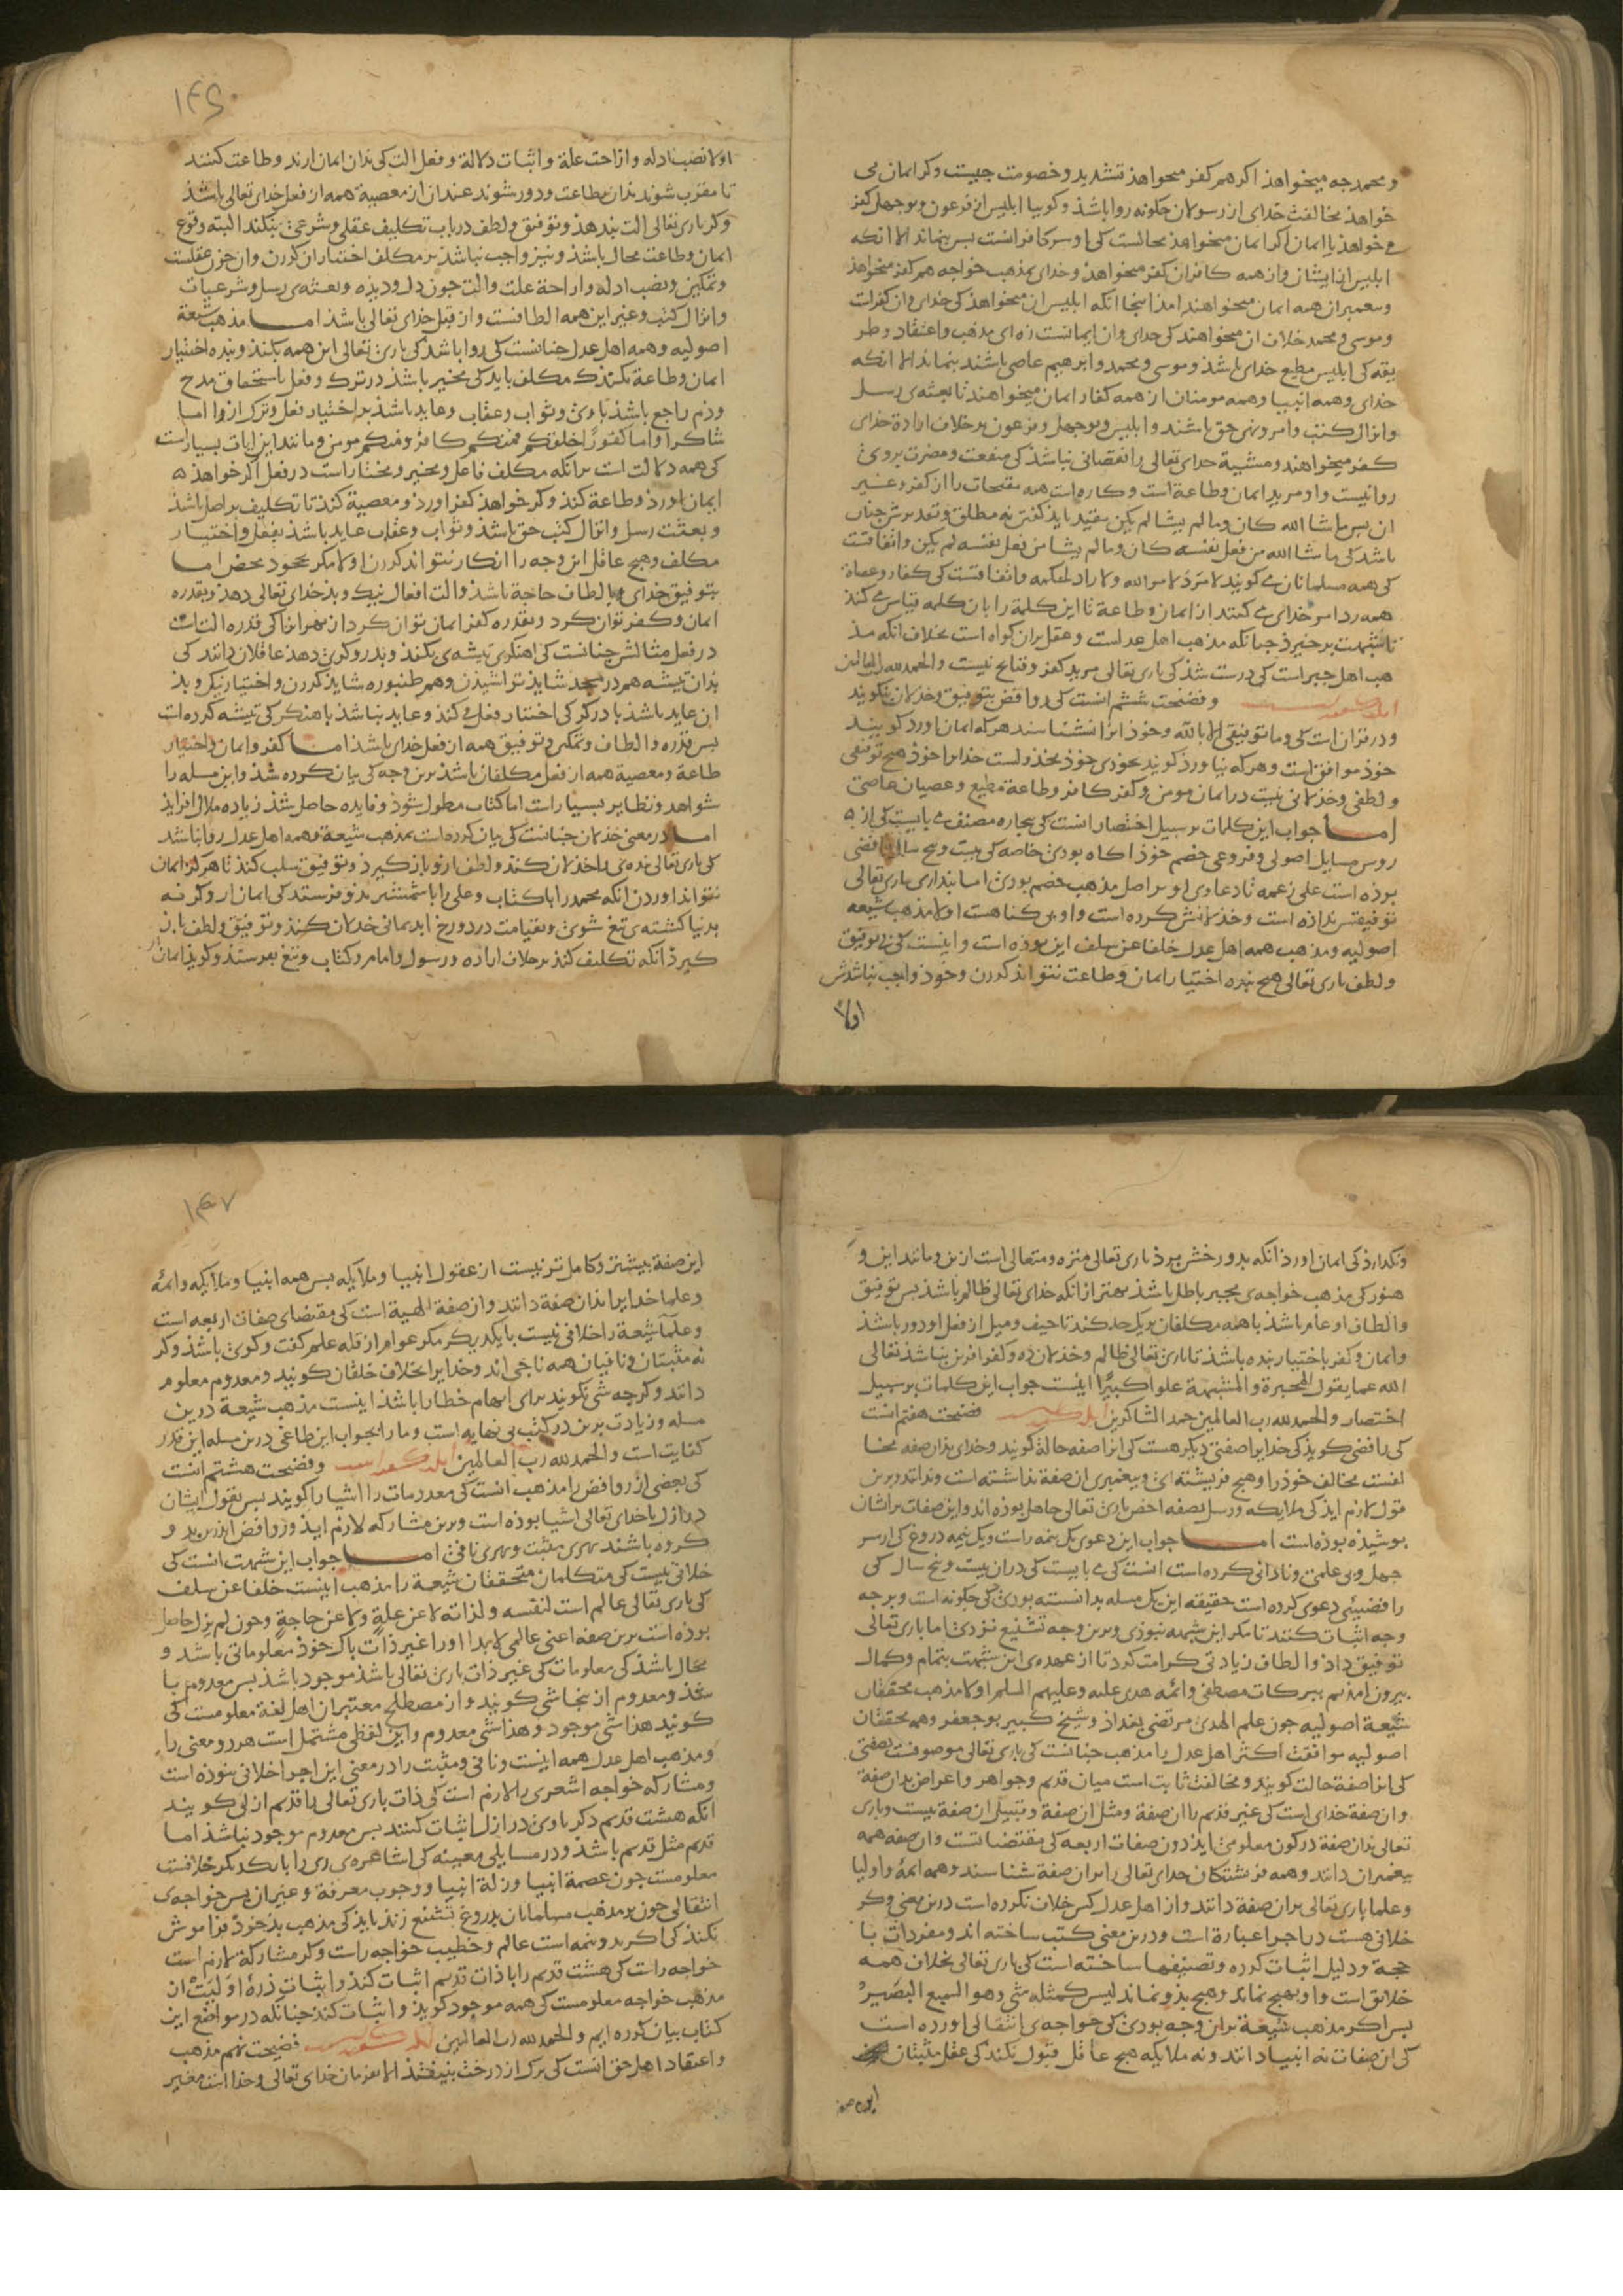 و محمد جه میخواهذ اکر هم کفر میخواهذ تشدید و خصومت جیست وکر ایمان می
خواهذ مخالفت خدای از رسولان جکونه روا باشذ وکوییا ابلیس از فرعون و بوجهل کفر
می خواهذ یا ایمان اکر ایمان میخواهذ محالست کی او سر کافرانست بس بنماند الا انکه
ابلیس از ایشان و از همه کافران کفر میخواهذ و خدای بمذهب خواجه هم کفر میخواهذ
و بیغمبران همه ایمان میخواهند امذ اینجا انکه ابلیس ان میخواهذ کی خدای وان کفرست
و موسی و محمد خلاف ان میخواهند کی خدای وان ایمانست زه ای مذهب و اعتقاد و طر
یقه کی ابلیس مطیع خدای باشذ و موسی و محمد و ابرهیم عاصی باشند بنماند الا انکه
خدای و همه انبیا و همه مومنان از همه کفار ایمان میخواهند تا بعثه‌ی رسل
و انزال کتب و امر و نهی حق باشند و ابلیس و بوجهل و فرعون بر خلاف ارادة خدای
کفر میخواهند و مشیة خدای تعالی را نقصانی نباشذ کی منفعت و مضرت بروی
روا نیست و او مرید ایمان و طاعة است و کاره است همه مقبحات را از کفر و غیر
ان بس ما شا الله کان و ما لم یشا لم یکن مقید باید کفتن نه مطلق و تقدیرش جنان
باشد کی ما شا الله من فعل نفسه کان و ما لم یشا من فعل نفسه لم یکن و اتفاقست
کی همه مسلمانان می کویند لا مرد لامر الله و لا راد لحکمه و اتفاقست کی کفار و عصاة
همه رد امر خدای می کنند از ایمان و طاعة تا این کلمة را بان کلمه قیاس می کند
تا شبهت برخیزد جنانکه مذهب اهل عدلست و عقل بران کواه است بخلاف انکه مذ
هب اهل جبر است کی درست شذ کی باری تعالی مرید کفر و قبایح نیست والحمدلله رب العالمین
و فضیحت ششم انست کی روافض بتوفیق و خذلان نکویند
و در قران است کی و ما توفیقی الا بالله و خوذ انرا نشناسند هرکه ایمان اورد کویند
خوذ موافق است و هرکه نیاورد کویند بخودی خوذ مخذولست خدایرا خوذ هیج توفیقی
و لطفی و خذلانی نیست در ایمان مومن و کفر کافر و طاعة مطیع و عصیان عاصی
اما جواب این کلمات بر سبیل اختصار انست کی بیجاره مصنف می بایست کی از
روس مسایل اصولی و فروعی خصم خوذ اکاه بوذی خاصه کی بیست و بنج سال رافضی
بوذه است علی زعمه تا دعاوی او بر اصل مذهب خصم بوذی اما بنداری باری تعالی
توفیقش نداذه است و خذلانش کرده است و او بی کناهست اولا مذهب شیعه
اصولیه و مذهب همه اهل عدل خلفا عن سلف این بوذه است و اینست کی بی توفیق
و لطف باری تعالی هیج بنده اختیار ایمان و طاعت نتواند کردن و خوذ واجب نباشدش
اولا
اولا نصب ادله و ازاحت علة و اثبات دلالة و فعل الت کی بذان ایمان ارند و طاعت کنند
تا مقرب شوند بذان بطاعت و دور شوند عند ان از معصیة همه از فعل خدای تعالی باشذ
وکر باری تعالی الت ندهذ و توفیق و لطف در باب تکلیف عقلی و شرعی نکند البته وقوع
ایمان و طاعت محال باشذ و نیز واجب نباشذ بر مکلف اختیار ان کردن وان جون عقلست
و تمکین و نصب ادله و ازاحة علت و الت جون دل و دیذه و بعثه‌ی رسل و شرعیات
و انزال کتب و غیر این همه الطافست و از قبل خدای تعالی باشذ اما مذهب شیعة
اصولیه و همه اهل عدل جنانست کی روا باشذ کی باری تعالی این همه بکند و بنده اختیار
ایمان و طاعة نکند کی مکلف باید کی مخیر باشذ در ترک و فعل تا استحقاق مدح
و ذم راجع باشذ باوی و ثواب و عقاب و عاید باشذ بر اختیار فعل و ترک از و اما
شاکرا و اما کفورا خلقکم فمنکم کافر و منکم مومن و مانند این ایات بسیار است
کی همه دلالت است برانکه مکلف فاعل و مخیر و مختار است در فعل اکر خواهذ
ایمان اورذ و طاعة کند وکر خواهذ کفر اورد و معصیة کند تا تکلیف بر اصل باشذ
و بعثت رسل و انزال کتب حق باشذ و ثواب و عقاب عاید باشذ بفعل و اختیار
مکلف و هیج عاقل این وجه را انکار نتواند کردن اولا مکر بجحود محض اما
بتوفیق خدای و بالطاف حاجة باشذ و الت افعال نیک و بد خدای تعالی دهذ و بقدره
ایمان و کفر توان کرد و بقدره کفر ایمان توان کرد از بهر انرا کی قدره الت است
در فعل مثالش جنانست کی اهنکری تیشه‌ی بکند و بدروکری دهذ عاقلان دانند کی
بذان تیشه هم در مسجد شاید تراشیدن و هم طنبوره شاید کردن و اختیار نیک و بد
ان عاید باشذ با درکر کی اختیار بفعل می کند و عاید نباشذ باهنکر کی تیشه کرده است
بس قدره و الطاف و تمکین و توفیق همه از فعل خدای باشذ اما کفر و ایمان و اختیار
طاعة و معصیة همه از فعل مکلفان باشذ برین وجه کی بیان کرده شذ و این مسله را
شواهد و نظایر بسیار است اما کتاب مطول شوذ و فایده حاصل شذ زیاده ملال افزاید
اما در معنی خذلان جنانست کی بیان کرده است بمذهب شیعة و همه اهل عدل روا نباشد
کی باری تعالی بنده‌ی را خذلان کند و لطف ازو باز کیرد و توفیق سلب کند تا هرکز ایمان
نتواند اوردن انکه محمد را با کتاب و علی را با شمشیر بدو فرستد کی ایمان ار وکر نه
بدنیا کشته‌ی تیغ شوی و بقیامت در دوزخ ابد بمانی خذلان کند و توفیق و لطف باز
کیرد انکه تکلیف کند بر خلاف اراده و رسول و امام و کتاب و تیغ بفرستد و کوید ایمان
و نکذارد کی ایمان اورد انکه بدوزخش برد باری تعالی منزه و متعالی است ازین و مانند این و
هنوز کی مذهب خواجه‌ی مجبر باطل باشد بهتر از انکه خدای تعالی ظالم باشذ بس توفیق
و الطاف او عام باشذ با همه مکلفان بریک حد کند تا حیف و میل از فعل او دور باشذ
و ایمان و کفر باختیار بنده باشذ تا باری تعالی ظالم و خذلان ده و کفر افرین نباشذ تعالی
الله عما یقول المجبرة و المشبهة علوا کبیرا اینست جواب این کلمات بر سبیل
اختصار والحمدلله رب العالمین حمد الشاکرین فضیحت هفتم انست
کی رافضی کوید کی خدایرا صفتی دیکر هست کی انرا صفه حالة کویند و خدای بذان صفه مخا
لفست مخالف خوذ را و هیج فریشته‌ای و بیغمبری ان صفة نداشته است و نداند و برین
قول لازم اید کی ملایکه و رسل بصفه اخص باری تعالی جاهل بوذه اند و این صفات بر ایشان
بوشیذه بوذه است اما جواب این دعوی یک نیمه راست و یک نیمه دروغ کی از سر
جهل و بی علمی و نادانی کرده است انست کی می بایست کی دران بیست و بنج سال کی
رافضیئی دعوی کرده است حقیقه این یک مسله بدانسته بوذی کی جکونه است و بر جه
وجه اثبات کنند تا مکر این شبهه نبوذی و برین وجه تشنیع نزدی اما باری تعالی
توفیق داذ و الطاف زیادتی کرامت کرد تا از عهده‌ی این شبهت بتمام و کمال
بیرون امدیم ببرکات مصطفی و ائمه هدی علیه و علیهم السلم اولا مذهب محققان
شیعة اصولیه جون علم الهدی مرتضی بغداذ و شیخ کبیر بوجعفر و همه محققان
اصولیه موافقت اکثر اهل عدل را مذهب جنانست کی باری تعالی موصوفست بصفتی
کی انرا صفة حالت کویند و مخالفت ثابت است میان قدیم و جواهر و اعراض بذان صفة
و ان صفة خدای است کی غیر قدیم را ان صفة و مثل ان صفة و قبیل ان صفة نیست و باری
تعالی بذان صفة در کون معلومی اید و ن صفات اربعه کی مقتضاتست و ان صفه همه
بیغمبران دانند و همه فریشتکان خدای تعالی را بران صفة شناسند و همه ایمة و اولیا
و علما باری تعالی بران صفة دانند و از اهل عدل کس خلاف نکرده است درین معنی و کر
خلافی هست در اجرا عبارة است و درین معنی کتب ساخته اند و مفردات با
حجة و دلیل اثبات کرده و تصنیفها ساخته است کی باری تعالی بخلاف همه
خلایق است و او بهیج نماند و هیج بدو نماند لیس کمثله شی و هو السمیع البصیر
بس اکر مذهب شیعة بران وجه بوذی کی خواجه‌ی انتقالی اورده است
کی ان صفات نه انبیا دانند و نه ملایکه هیج عاقل قبول نکند کی عقل مثبتان
این صفة
این صفة بیشتر و کامل تر نیست از عقول انبیا و ملایکه بس همه انبیا و ملایکه و ایمه
و علما خدایرا بذان صفة دانند و ان صفة الهیة است کی مقتضای صفات اربعه است
و علمآ شیعة را خلافی نیست با یکدیکر مکر عوام از قله علم کفت و کوی باشذ و کر
نه مثبتان و نافیان همه ناجی اند و خدایرا بخلاف خلقان کویند و معدوم معلوم
دانند و کر جه شی نکویند برای ابهام خطا را باشذ اینست مذهب شیعة درین
مسله و زیادت برین در کتب بی نهایه است و ما را بجواب این طاعی درین مسله این قدر
کفایت است والحمدلله رب العالمین و فضیحت هشتم انست
کی بعضی از روافض را مذهب انست کی معدومات را اشیا را کویند بس بقول ایشان
در ازل با خدای تعالی اشیا بوذه است و برین مشارکه لازم اید و روافض اندرین دو
کروه باشند بهری مثبت و بهری نافی اما جواب این شبهت انست کی
خلافی نیست کی متکلمان محققان شیعة را مذهب اینست خلفا عن سلف
کی باری تعالی عالم است لنفسه و لذاته لا عن علة و لا عن حاجة و جون لم یزل حاصل
بوذه است برین صفه اعنی عالمی لابد او را غیر ذات باک خوذ معلوماتی باشذ و
محال باشذ کی معلومات کی غیر ذات باری تعالی باشذ موجود باشذ بس معدوم با
شذ و معدوم از بنجا شی کویند و از مصطلح معتبران اهل لغة معلومست کی
کویند هذا شی موجود و هذا شی معدوم و این لفظی مشتمل است هر دو معنی را
و مذهب اهل عدل همه اینست و نافی و مثبت را در معنی این اجرا خلافی نبوذه است
و مشارکه خواجه اشعری را لازم است کی ذات باری تعالی را قدیم ازلی کویند
انکه هشت قدیم دکر باوی در ازل اثبات کنند بس معدوم موجود نباشذ اما
قدیم مثل قدیم باشذ و در مسایلی معینه کی اشاعره‌ی ری را با یکدیکر خلافست
معلومست جون عصمة انبیا و زلة انبیا و وجوب معرفة و غیر ان بس خواجه‌ی
انتقالی جون بر مذهب مسلمانان بدروغ تشنیع زند باید کی مذهب بذ خوذ فراموش
نکند کی اکر بدو نیمه است عالم و خطیب خواجه راست و کر مشارکة لازم است
خواجه راست کی هشت قدیم را با ذات قدیم اثبات کند و اثبات ذرة اولیت ان
مذهب خواجه معلومست کی همه موجود کویذ و اثبات کند جنانکه در مواضع این
کتاب بیان کرده ایم والحمدلله رب العالمین فضیحت نهم مذهب
و اعتقاد اهل حق انست کی برک از درخت بنیفتذ الا بفرمان خدای تعالی و خداست مغیر